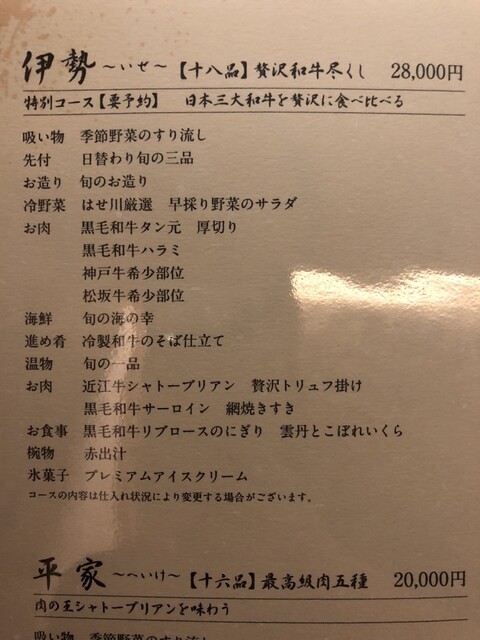 伊勢 ～いせ～ 【十八品】贅沢和牛尽くし 28,000円
特別コース【要予約】 日本三大和牛を贅沢に食べ比べる
吸い物 季節野菜のすり流し
先付 日替わり旬の三品
お造り 旬のお造り
冷野菜 はせ川厳選 早採り野菜のサラダ
お肉 黒毛和牛タン元 厚切り
黒毛和牛ハラミ
神戸牛希少部位
松坂牛希少部位
海鮮 旬の海の幸
進め肴 冷製和牛のそば仕立て
温物 旬の一品
お肉 近江牛シャトーブリアン 贅沢トリュフ掛け
黒毛和牛サーロイン 網焼きすき
お食事 黒毛和牛リブロースのにぎり 雲丹とこぼれいくら
椀物 赤出汁
氷菓子 プレミアムアイスクリーム
コースの内容は仕入れ状況により変更する場合がございます。
平家 ～へいけ～ 【十六品】最高級肉五種 20,000円
肉の王シャトーブリアンを味わう
吸い物 季節野菜のすり流し